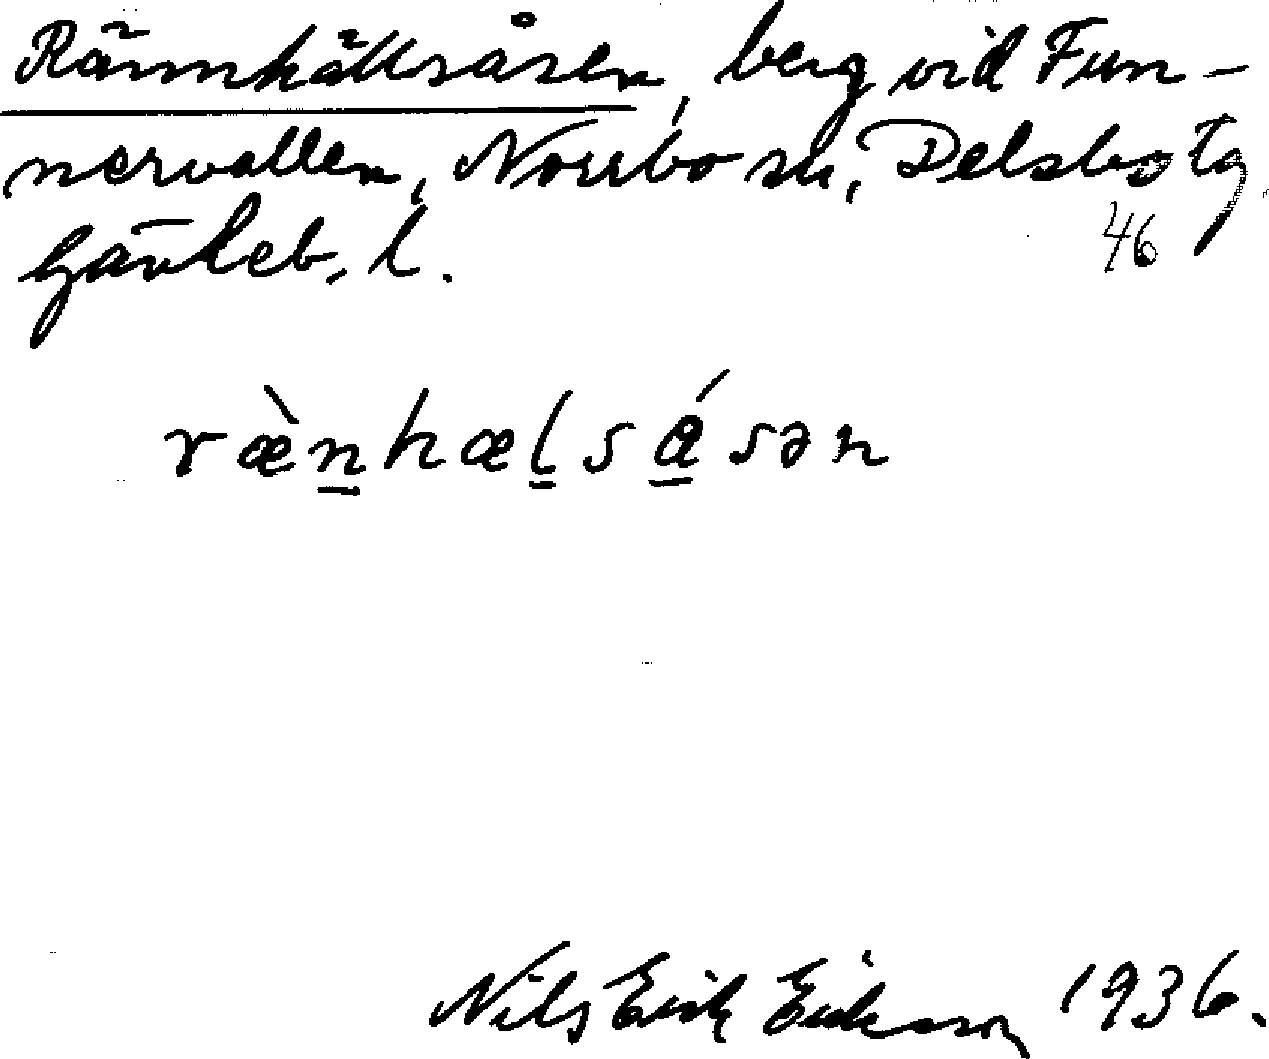 Rännhällsåsen, berg vid Fun-
nervallen, Norrbo sn, Delsbo tg
Gävleb. l.
46
ræ̀n̲hæl̲sá̲sən
Nils Erik Eriksson 1936.